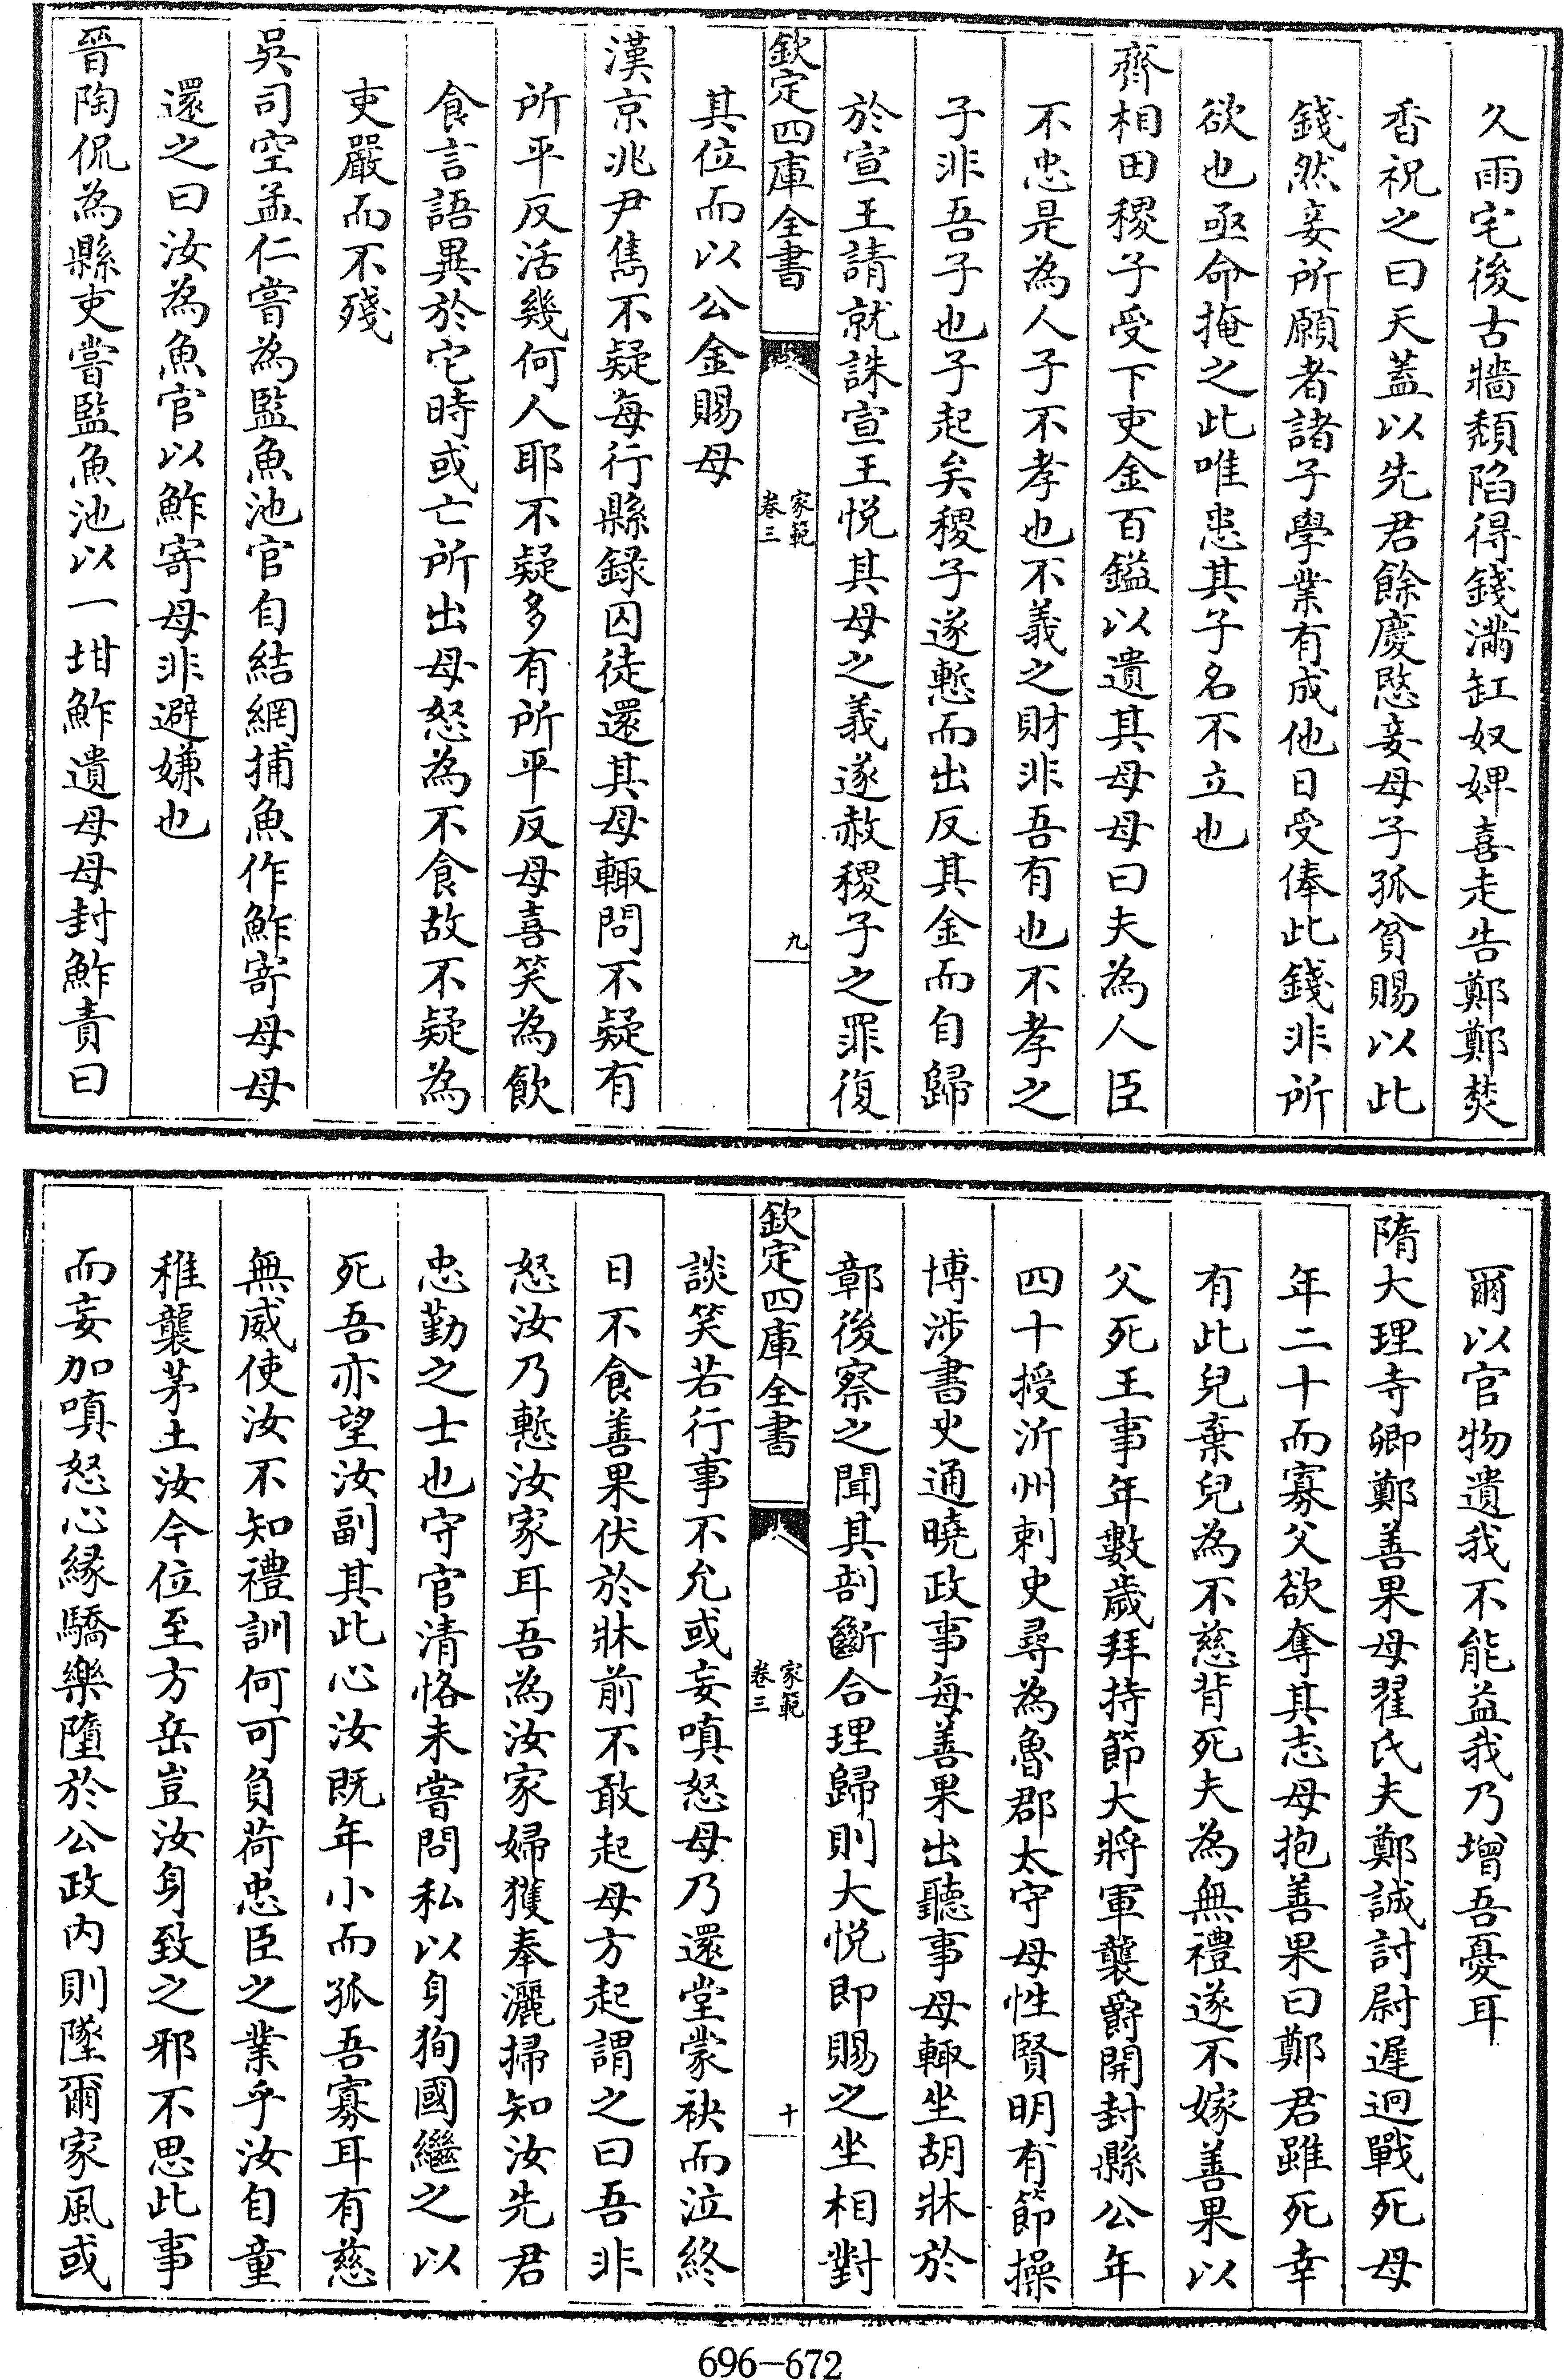 久雨宅後古牆頽陷得錢滿缸奴婢喜走告鄭鄭焚
香祝之曰天蓋以先君餘慶愍妾母子孤貧賜以此
錢然妾所願者諸子學業有成他日受俸此錢非所
欲也亟命掩之此唯患其子名不立也
齊相田稷子受下吏金百鎰以遺其母母曰夫為人臣
不忠是為人子不孝也不義之財非吾有也不孝之
子非吾子也子起矣稷子遂慙而出反其金而自歸
於宣王請就誅宣王悅其母之義遂赦稷子之罪復
欽定四庫全書
家範
卷三
九
其位而以公金賜母
漢京兆尹雋不疑每行縣録囚徒還其母輒問不疑有
所平反活幾何人耶不疑多有所平反母喜笑為飲
食言語異於它時或亡所出母怒為不食故不疑為
吏嚴而不殘
吳司空孟仁嘗為監魚池官自結網捕魚作鮓寄母母
還之曰汝為魚官以鮓寄母非避嫌也
晉陶侃為縣吏嘗監魚池以一坩鮓遺母母封鮓責曰
爾以官物遺我不能益我乃增吾憂耳
隋大理寺卿鄭善果母翟氏夫鄭誠討尉遲迥戰死母
年二十而寡父欲奪其志母抱善果曰鄭君雖死幸
有此兒棄兒為不慈背死夫為無禮遂不嫁善果以
父死王事年數歲拜持節大將軍襲爵開封縣公年
四十授沂州刺史尋為魯郡太守母性賢明有節操
博涉書史通曉政事每善果出聽事母輒坐胡牀於
鄣後察之聞其剖斷合理歸則大悅即賜之坐相對
欽定四庫全書
家範
卷三
十
談笑若行事不允或妄嗔怒母乃還堂蒙袂而泣終
日不食善果伏於牀前不敢起母方起謂之曰吾非
怒汝乃慙汝家耳吾為汝家婦獲奉灑掃知汝先君
忠勤之士也守官清恪未嘗問私以身狥國繼之以
死吾亦望汝副其此心汝既年小而孤吾寡耳有慈
無威使汝不知禮訓何可負荷忠臣之業乎汝自童
稚襲茅土汝今位至方岳豈汝身致之邪不思此事
而妄加嗔怒心緣驕樂墮於公政内則墜爾家風或
696-672